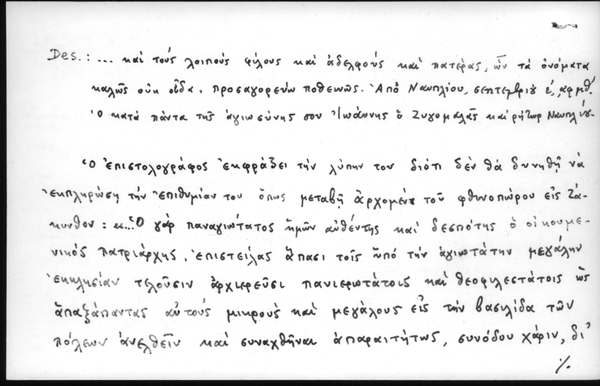 Des.: ... καὶ τοὺς λοιποὺς φίλους καὶ ἀδελφοὺς καὶ πατέρας, ὧν τὰ ὀνόματα
καλῶς οὐκ οἶδα. προσαγορεύω ποθεινῶς. Ἀπὸ Ναυπλίου, σεπτεμβρίου ιʹ, ͵αφμθʹ.
Ὁ κατὰ πάντα τῆς ἁγιωσύνης σου Ἰωάννης ὁ Ζυγομαλᾶς καὶ ῥήτωρ Ναυπλίου.
Ὁ ἐπιστολογράφος ἐκφράζει τὴν λύπην του διότι δὲν θὰ δυνηθῇ νὰ
ἐκπληρώσῃ τὴν ἐπιθυμίαν του ὅπως μεταβῇ ἀρχομένου τοῦ φθινοπώρου εἰς Ζά-
κυνθον: «...Ὁ γὰρ παναγιώτατος ἡμῶν αὐθέντης καὶ δεσπότης ὁ οἰκουμε-
νικὸς πατριάρχης, ἐπιστείλας ἅπασι τοῖς ὑπὸ τὴν ἁγιωτάτην μεγάλην
ἐκκλησίαν τελοῦσιν ἀρχιερεῦσι πανιερωτάτοις καὶ θεοφιλεστάτοις ὡς
ἁπαξάπαντας αὐτοὺς μικροὺς καὶ μεγάλους εἰς τὴν βασιλίδα τῶν
πόλεων ἀνελθεῖν καὶ συναχθῆναι ἀπαραιτήτως, συνόδου χάριν, δι'
./.